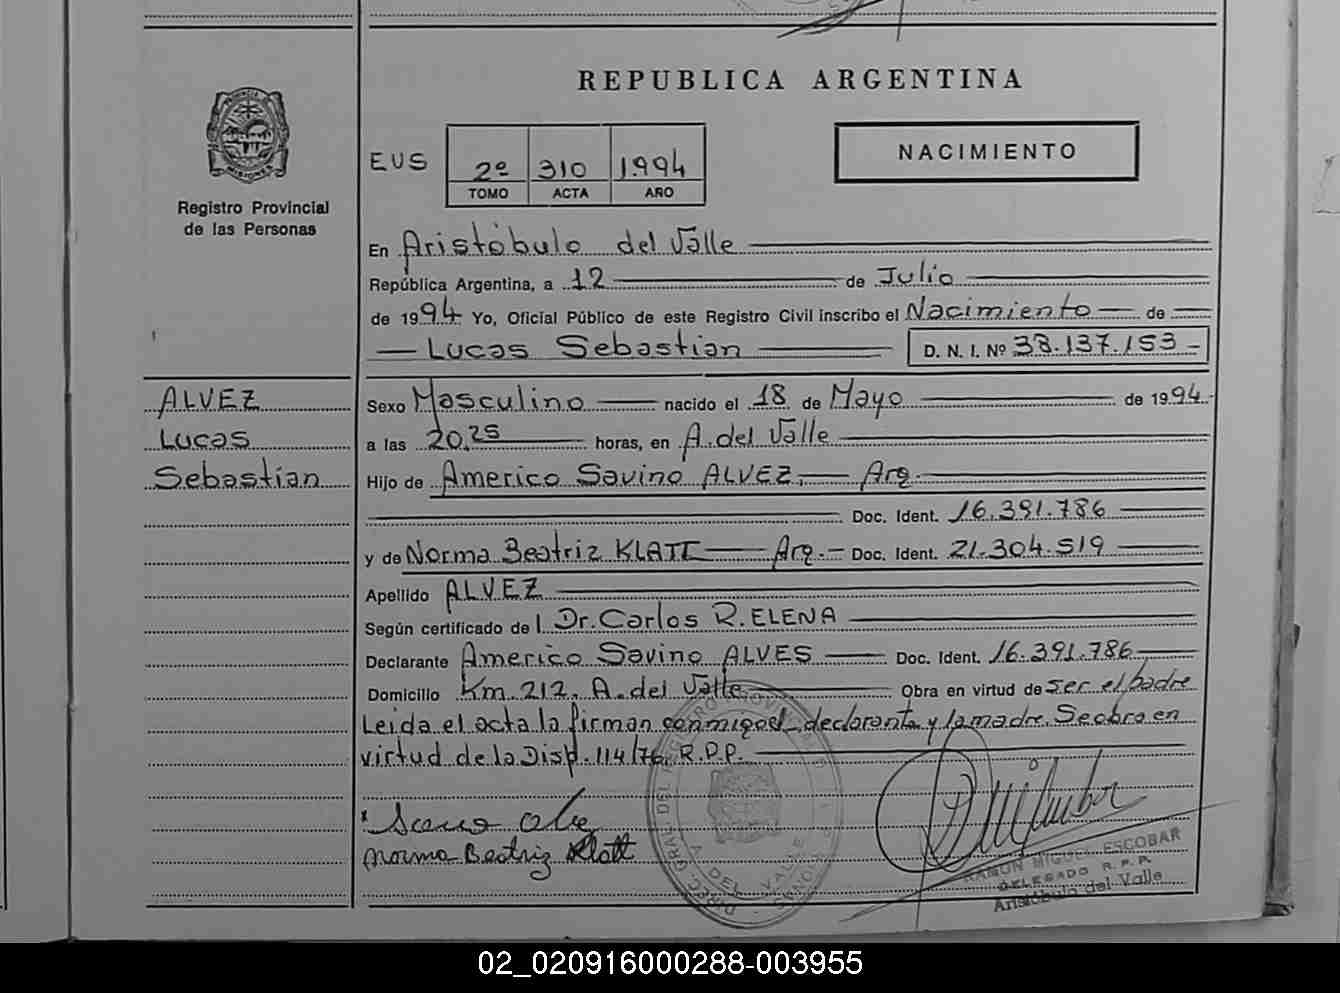 REPUBLICA ARGENTINA
PROVINCIA
MISIONES
Registro Provincial
de las Personas
EUS 2º 310 1.994
TOMO ACTA AÑO
NACIMIENTO
En Aristóbulo del Valle
República Argentina, a 12 de Julio
de 1994 Yo, Oficial Público de este Registro Civil inscribo el Nacimiento de
Lucas Sebastian D. N. I. Nº 38.137.153
ALVEZ
Lucas
Sebastian
Sexo Masculino nacido el 18 de Mayo de 1994
a las 20,25 horas, en A. del Valle
Hijo de Americo Savino ALVEZ, Arg.
Doc. Ident. 16.391.786
y de Norma Beatriz KLATT Arg. Doc. Ident. 21.304.519
Apellido ALVEZ
Según certificado del Dr. Carlos R. ELENA
Declarante Americo Savino ALVES Doc. Ident. 16.391.786
Domicilio Km. 212. A. del Valle Obra en virtud de ser el padre
Leida el acta la firman conmigo el declarante y la madre. Se obra en
virtud de la Disp. 114/76. R.P.P.
Norma Beatriz Klatt
A. DEL VALLE
RAMON MIGUEL ESCOBAR
DELEGADO R. P. P.
Aristóbulo del Valle
02_020916000288-003955